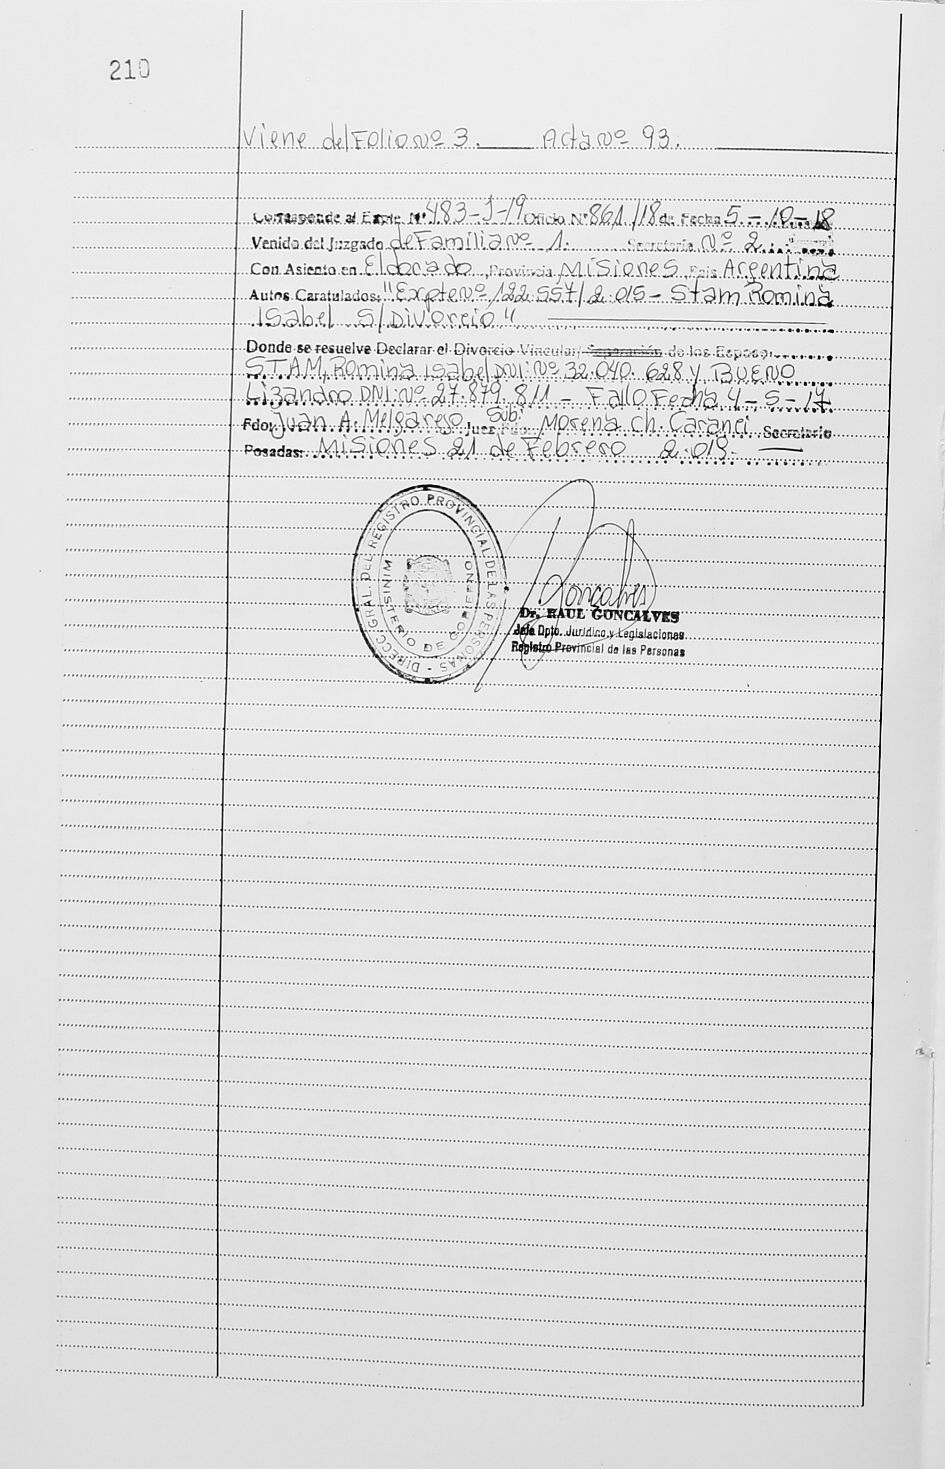 210
Viene del Folio nº 3. Acta nº 93.
Corresponde al Expte. Nº 483-J-19 Oficio Nº 861/18 de Fecha 5-10-18
Venido del Juzgado de Familia nº 1. Secretaría Nº 2
Con Asiento en Eldorado, Provincia Misiones País Argentina
Autos Caratulados: "Expte nº 122.557/2.015 - Stam Romina
Isabel S/Divorcio"
Donde se resuelve Declarar el Divorcio Vincular/ Separación de los Esposos:
STAM, Romina Isabel DNI: Nº 32.040.628 y BUENO
Lizandro DNI: Nº 27.879.811 - Fallo Fecha 4-5-17
Fdo. Juan A. Melgarejo Sub. Juez Morena Ch. Caranci Secretario
Posadas: Misiones 21 de Febrero 2.019.
DIRECC. GRAL. DEL REGISTRO PROVINCIAL DE LAS PERSONAS
MINISTERIO DE GOBIERNO
Goncalves
Dr. RAUL GONCALVES
Jefe Dpto. Jurídico y Legislaciones
Registro Provincial de las Personas